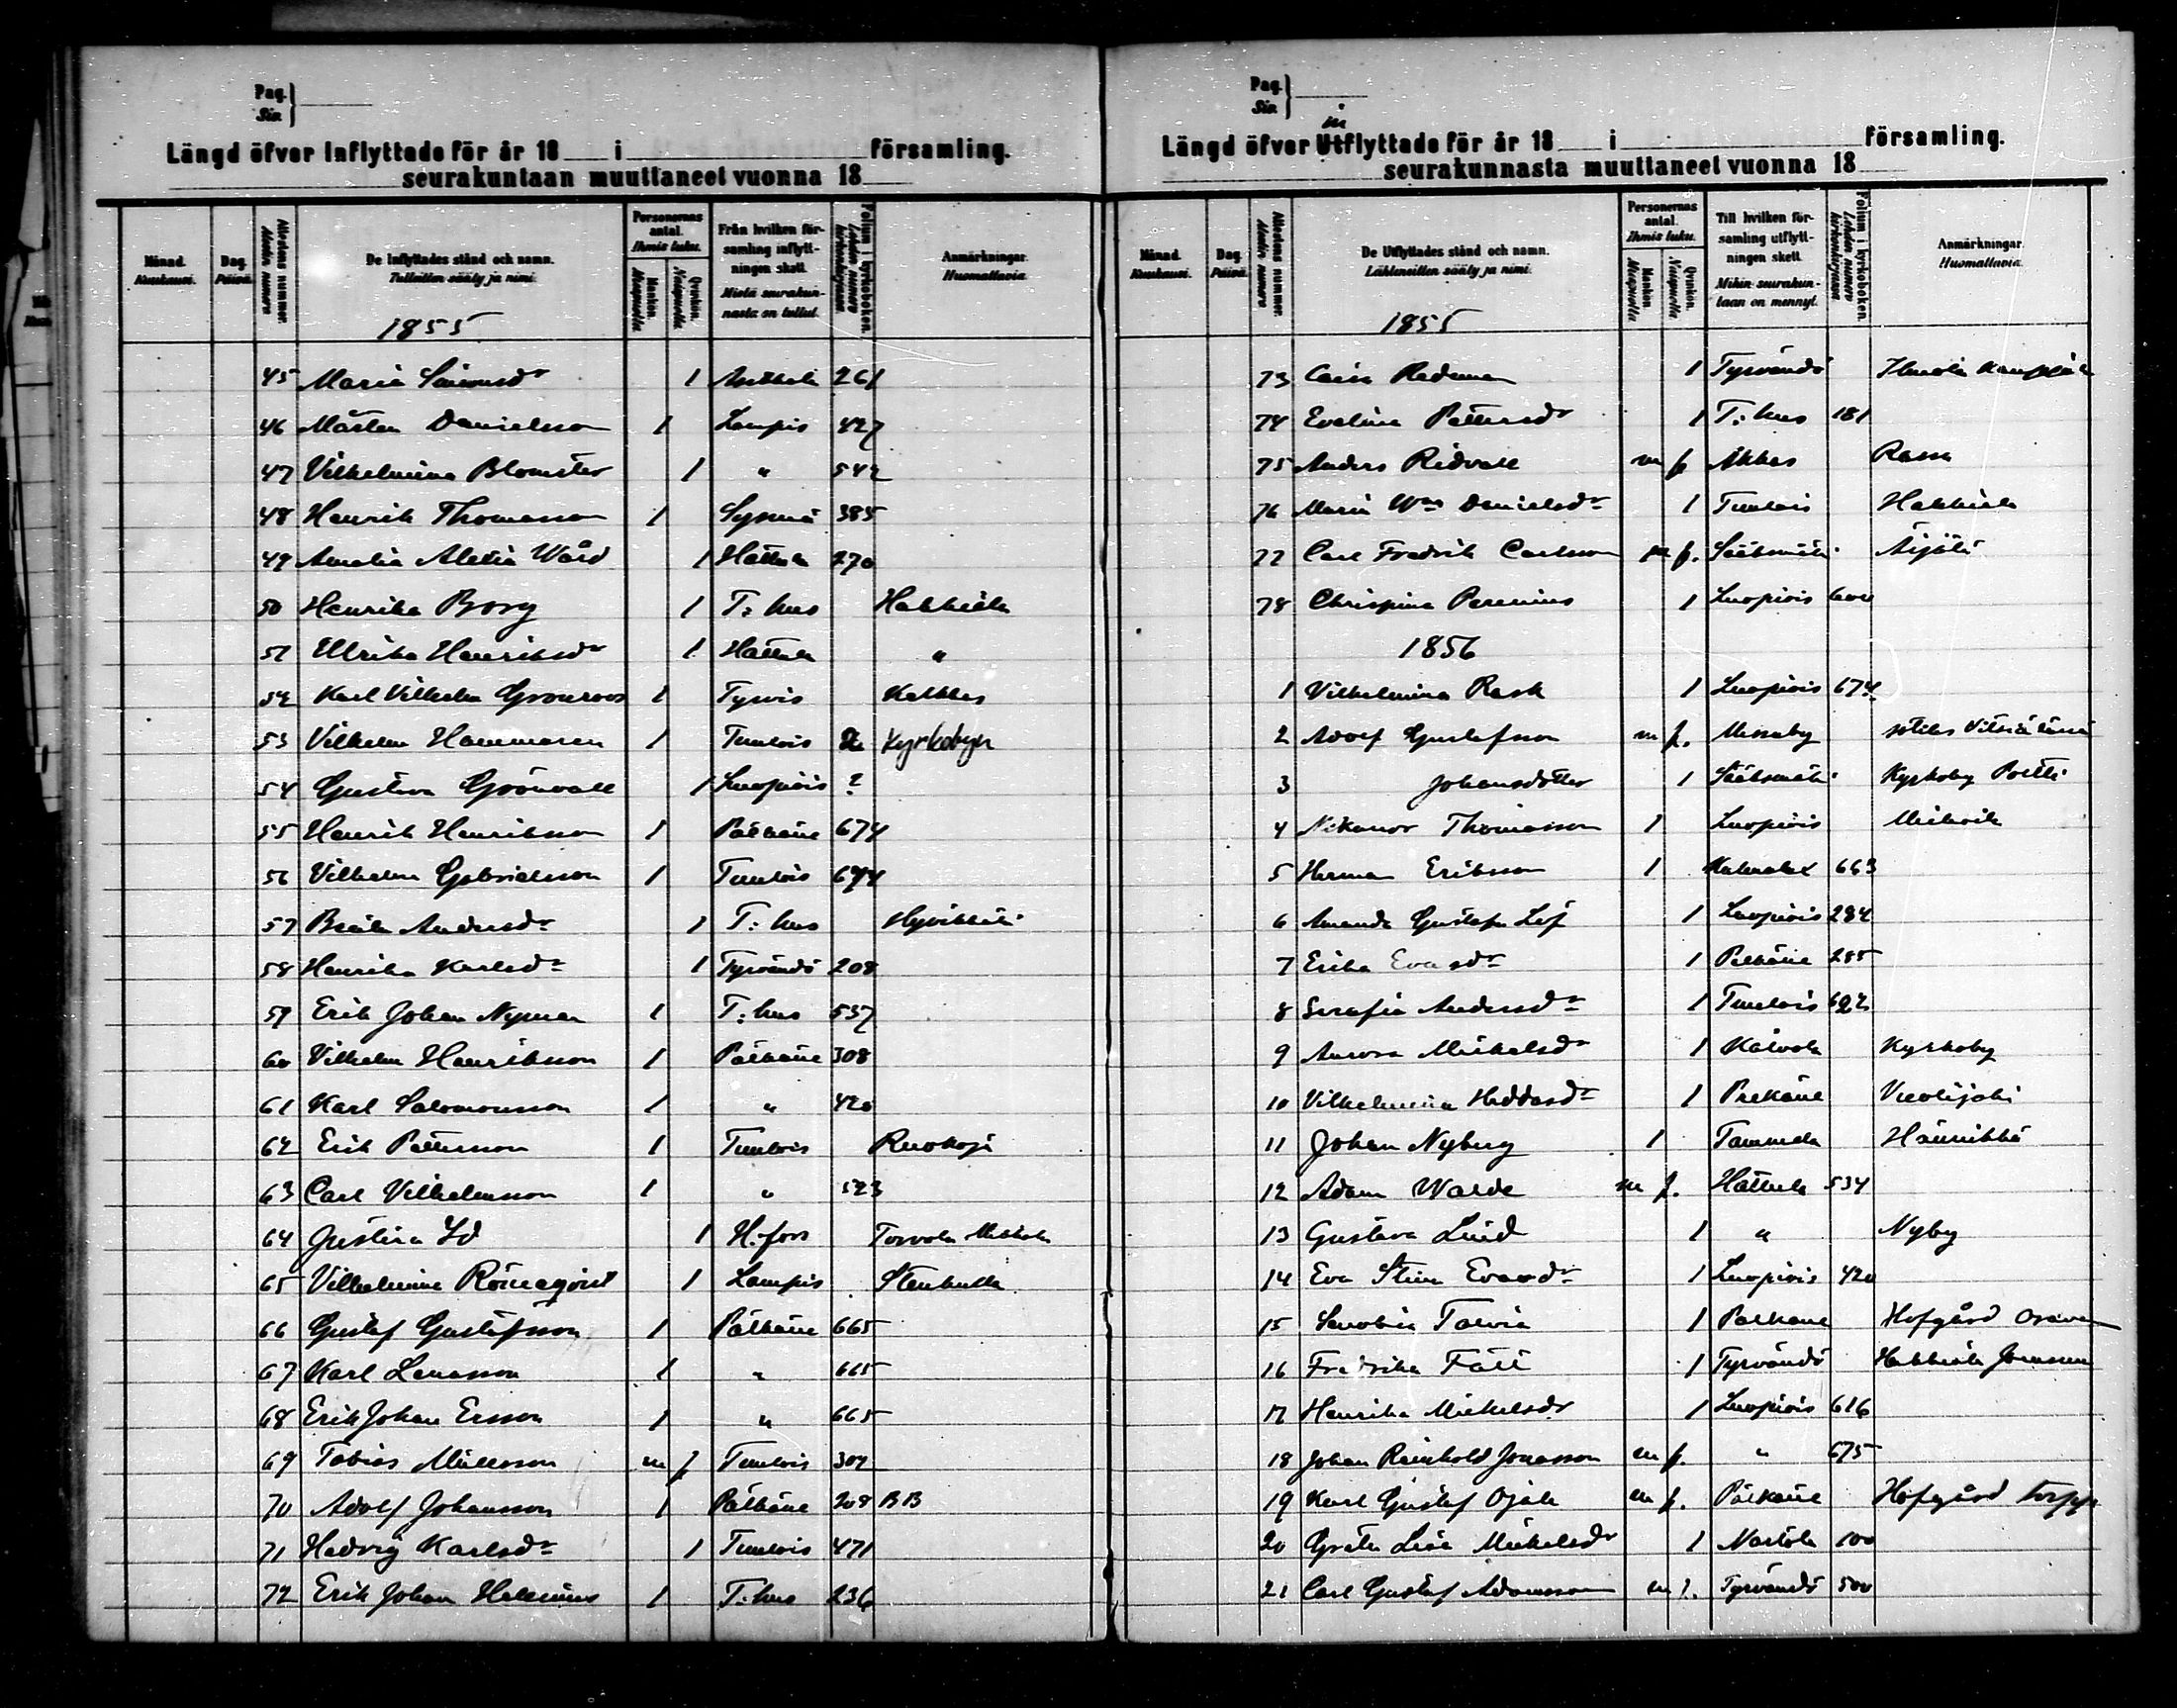 Pag.
Sir.
Längd öfver Inflyttade för år 18 i församling.
seurakuntaan muuttaneet vuonna 18
Månad. Kuukausi.
Dag. Päivä.
Attestens nummer.
De Inflyttades stånd och namn.
Tulleitten sääty ja nimi.
Personernas antal. Ihmis luku.
Mankön. Miespuolia
Qvinkön. Naispuolia
Från hvilken församling inflyttningen skett.
Mistä seurakunnasta on tullut.
Folium i kyrkoboken.
Anmärkningar.
Huomattavia.
1855
45 Maria Simonsdr 1 261
46 Mårten Danielsson 1 Lampis 427
47 Vilhelmina Blomster 1 " 542
48 Henrik Thomasson 1 Sysmä 385
49 Amalia Aletia Wård 1 Hattula 270
50 Henrika Borg 1 T:hus
51 Ullrika Henriksdr 1 Hattula "
52 Karl Vilhelm Grönroos 1 Tyrvis
53 Vilhelm Hammaren 1 Tuulois Kyrkobyn
54 Gustava Grönvall 1 Luopiois ?
55 Henrik Henriksson 1 Pälkäne 674
56 Vilhelm Gabrielsson 1 Tuulois 694
57 Beata Andersdr 1 T:hus
58 Henrika Karlsdr 1 Tyrväntö 208
59 Erik Johan Nyman 1 T:hus 537
60 Vilhelm Henriksson 1 Pälkäne 308
61 Karl Salomonsson 1 " 420
62 Erik Pettersson 1 Tuulois
63 Carl Vilhelmsson 1 " 523
64 Justina Id 1 H:fors
65 Vilhelmina Rönnqvist 1 Lampis
66 Gustaf Gustafsson 1 Pälkäne 665
67 Karl Lenasson 1 " 665
68 Erik Johan Ersson 1 " 665
69 Tobias m f Tuulois
70 Adolf Johansson 1 Pälkäne 208 BB
71 Hedvig Karlsdr 1 Tuulois 471
72 Erik Johan Helenius 1 T:hus 236
Pag.
Sir.
in
Längd öfver Utflyttade för år 18 i församling.
seurakunnasta muuttaneet vuonna 18
Månad. Kuukausi.
Dag. Päivä.
Attestens nummer.
De Utflyttades stånd och namn.
Lähteneitten sääty ja nimi.
Personernas antal. Ihmis luku.
Mankön. Miespuolia
Qvinkön. Naispuolia
Till hvilken församling utflyttningen skett.
Mihin seurakuntaan on mennyt.
Folium i kyrkoboken.
Anmärkningar.
Huomattavia.
1855
73 Caisa 1 Tyrväntö
74 Evelina Pettersdr 1 T:hus 181
75 Anders Ridvall m f Akkas
76 Maria Wm Danielsdr 1 Tuulois
77 Carl Fredrik Carlsson m f. Sääksmäki Äijälä
78 Chrispina 1 Luopiois 600
1856
1 Vilhelmina Rask 1 Luopiois 674
2 Adolf Gustafsson m f. Messuby
3 Johansdotter 1 Sääksmäki Kyrkoby
4 Nikanor Thomasson 1 Luopiois
5 Herman Eriksson 1 663
6 Amanda Gustafva Löf 1 Luopiois 284
7 Erika Evasdr 1 Pälkäne 285
8 Serafia Andersdr 1 Tuulois 692
9 Aurora Mickelsdr 1 Kalvola Kyrkoby
10 Vilhelmina Heddasdr 1 Pälkäne
11 Johan Nyberg 1 Tammela
12 Adam Walde m f. Hattula 534
13 Gustava Lind 1 " Nyby
14 Eva Stina Evasdr 1 Luopiois 420
15 1 Pälkäne Hofgård
16 Fredrika Fält 1 Tyrväntö
17 Henrika Mickelsdr 1 Luopiois 616
18 Johan Reinhold Jonasson m f. " 675
19 Karl Gustaf Ojala m f. Pälkäne Hofgård torpp
20 Greta Lisa Mickelsdr 1 100
21 Carl Gustaf Adamsson m f. Tyrväntö 500